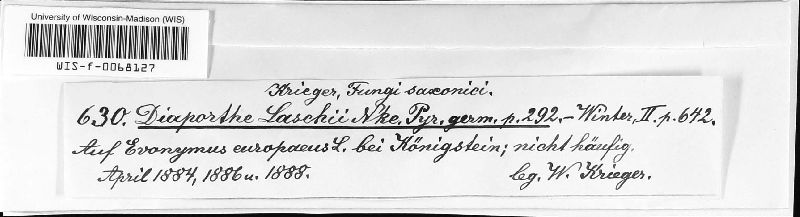 University of Wisconsin-Madison (WIS)
WIS-f-0068127
Krieger, Fungi saxonici.
630. Diaporthe Laschii Nke. Pyr. germ. p. 292. – Winter, II. p. 642.
Auf Evonymus europaeus L. bei Königstein; nicht häufig.
April 1884, 1886 u. 1888. leg. W. Krieger.